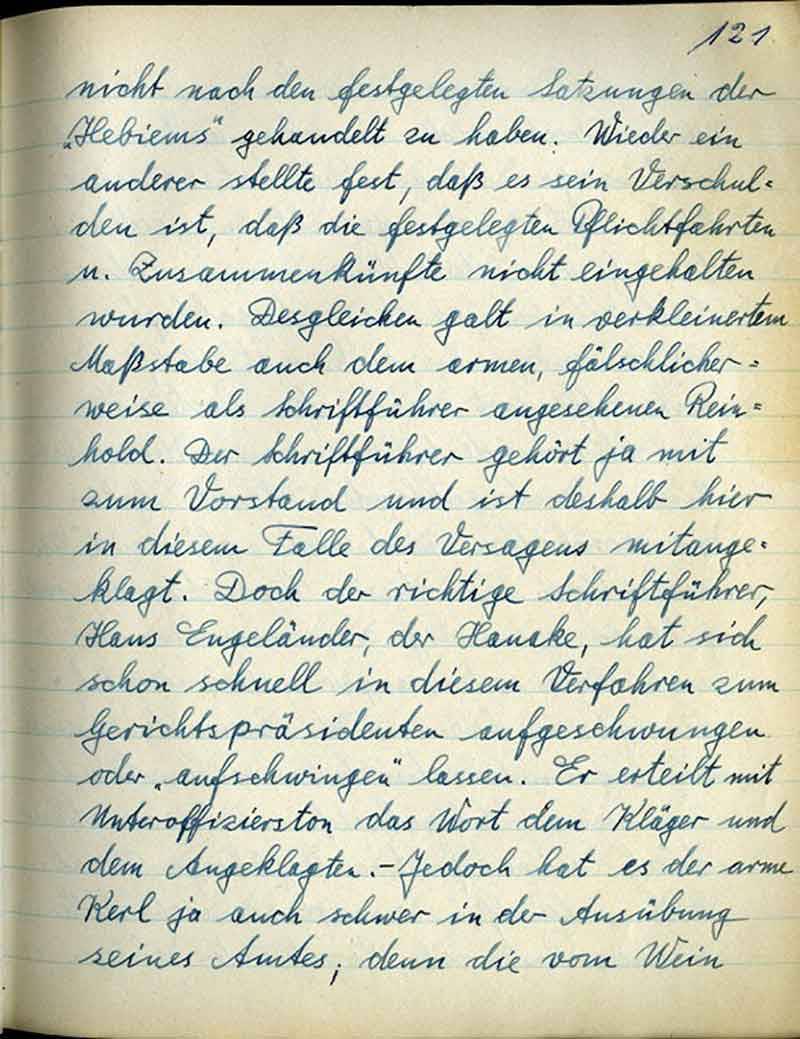 121
nicht nach den festgelegten Satzungen der
„Hebiems“ gehandelt zu haben. Wieder ein
anderer stellte fest, daß es sein Verschul=
den ist, daß die festgelegten Pflichtfahrten
u. Zusammenkünfte nicht eingehalten
wurden. Desgleichen galt in verkleinertem
Maßstabe auch dem armen, fälschlicher=
weise als Schriftführer angesehenen Rein=
hold. Der Schriftführer gehört ja mit
zum Vorstand und ist deshalb hier
in diesem Falle des Versagens mitange=
klagt. Doch der richtige Schriftführer,
Hans Engeländer, der Hanake, hat sich
schon schnell in diesem Verfahren zum
Gerichtspräsidenten aufgeschwungen
oder „aufschwingen“ lassen. Er erteilt mit
Unteroffizierston das Wort dem Kläger und
dem Angeklagten.- Jedoch hat es der arme
Kerl ja auch schwer in der Ausübung
seines Amtes; denn die vom Wein